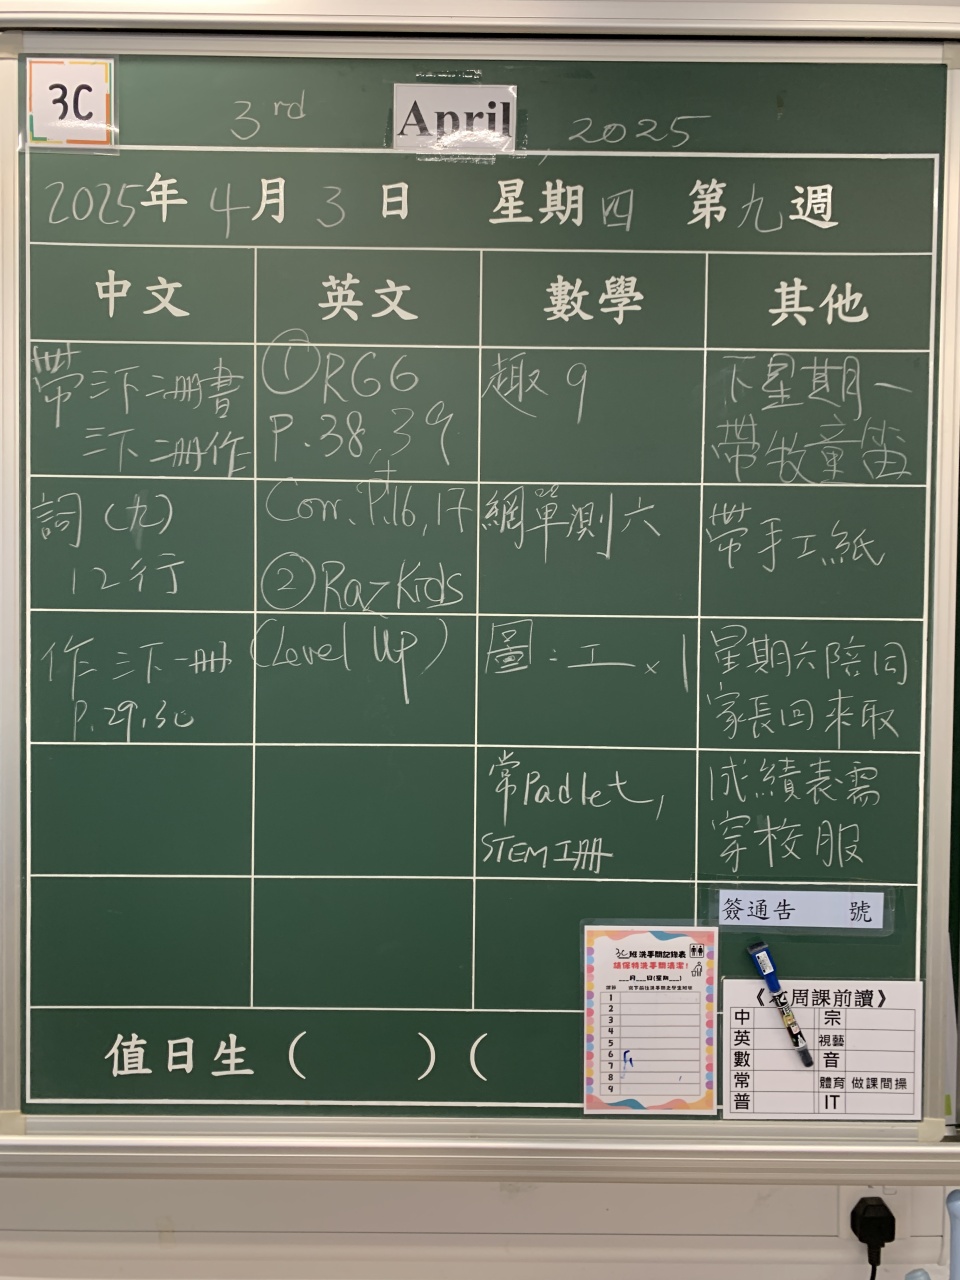 3C
3rd April, 2025
2025年 4月 3日 星期四 第九週
中文 英文 數學 其他
帶三下二冊書
三下二冊作
詞(九)
12行
作三下一冊
P.29,30
①RG6
P.38,39
+
Corr. P.16,17
②Raz-Kids
(Level Up)
趣9
網單測六
圖:工x1
常Padlet,
STEM工冊
下星期一
帶牧童笛
帶手工紙
星期六陪同
家長回來取
成績表需
穿校服
簽通告 號
3C班洗手間記錄表
請保持洗手間清潔!
___月___日(星期___)
1
2
3
4
5
6
7
8
9
周課前讀》
中 宗
英 視藝
數 音
常 體育 做課間操
普 IT
值日生( )(